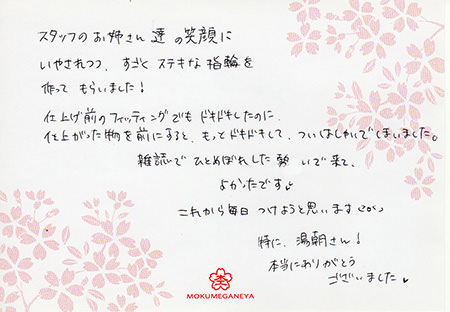 スタッフのお姉さん達の笑顔に
いやされつつ、すごくステキな指輪を
作ってもらいました!
仕上げ前のフィッティングでもドキドキしたのに、
仕上がった物を前にすると、もっとドキドキして、ついはしゃいでしまいました。
雑誌でひとめぼれした勢いで来て、
よかったです♥
これから毎日つけようと思います(^o^)
特に、湯朝さん!
本当にありがとう
ございました♥
MOKUMEGANEYA